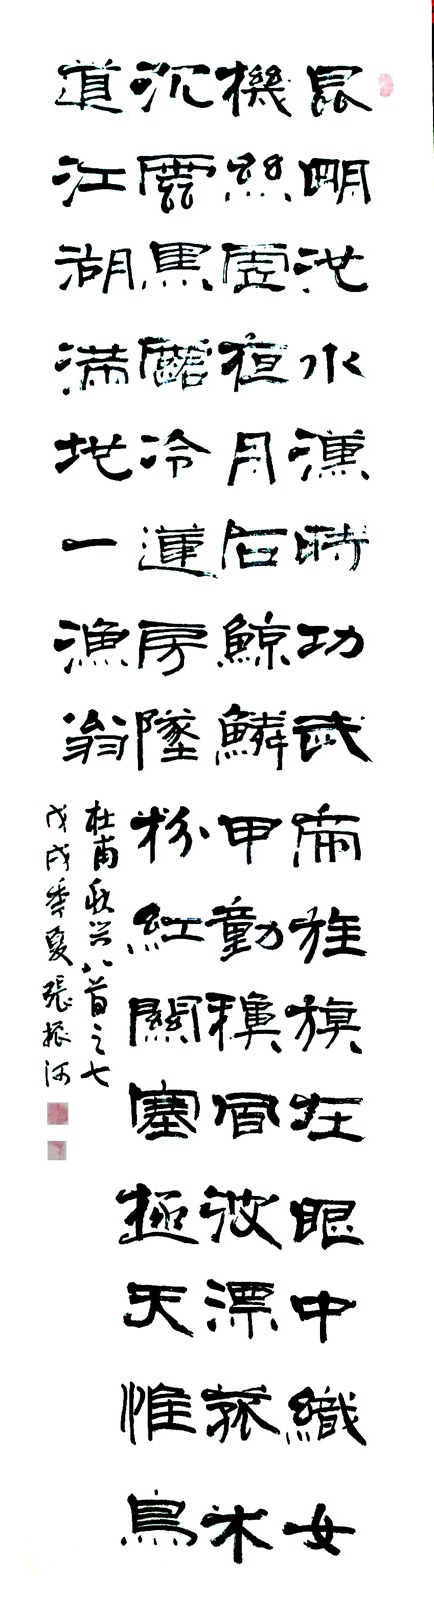 昆明池水漢時功武帝旌旗在眼中織女
機絲虛夜月石鯨鱗甲動秋風波漂菰米
沉雲黑露冷蓮房墜粉紅關塞極天惟鳥
道江湖滿地一漁翁
杜甫秋兴八首之七
戊戌季夏張振河